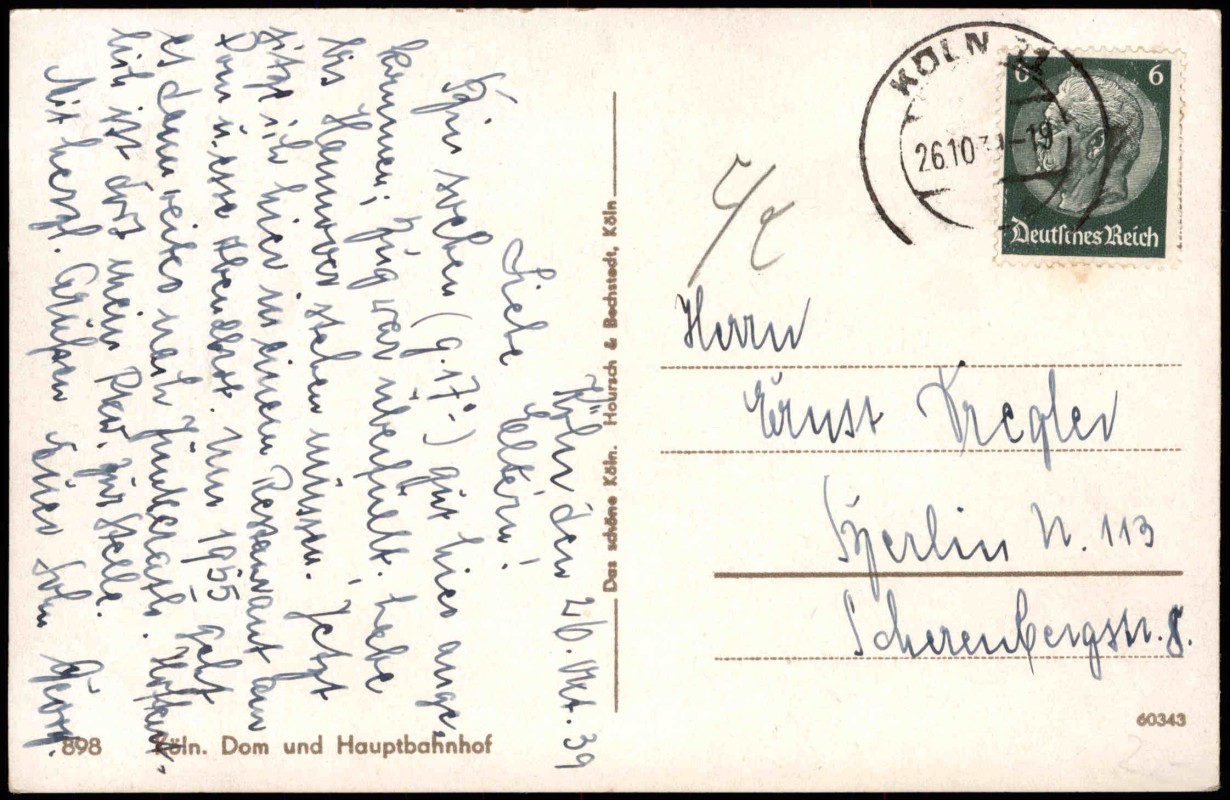 Köln den 26. Okt. 39
Liebe Eltern!
Bin soeben (g. 17°-) gut hier ange-
kommen; Zug war überfüllt. habe
bis Hannover stehen müssen. Jetzt
sitze ich hier in einem Restaurant am
Dom u. esse Abendbrot. Um 1955 geht
es dann weiter nach Jünkerath. Hoffent-
lich ist dort mein Pkw. zur Stelle.
Mit herzl. Grüßen Euer Sohn Georg.
898 Köln. Dom und Hauptbahnhof
Das schöne Köln. Hoursch & Bechstedt, Köln.
KÖLN
26.10.39-19
6 6
Deutsches Reich
Herrn
Ernst Kregler
Berlin N. 113
Scherenbergstr. 8.
60343